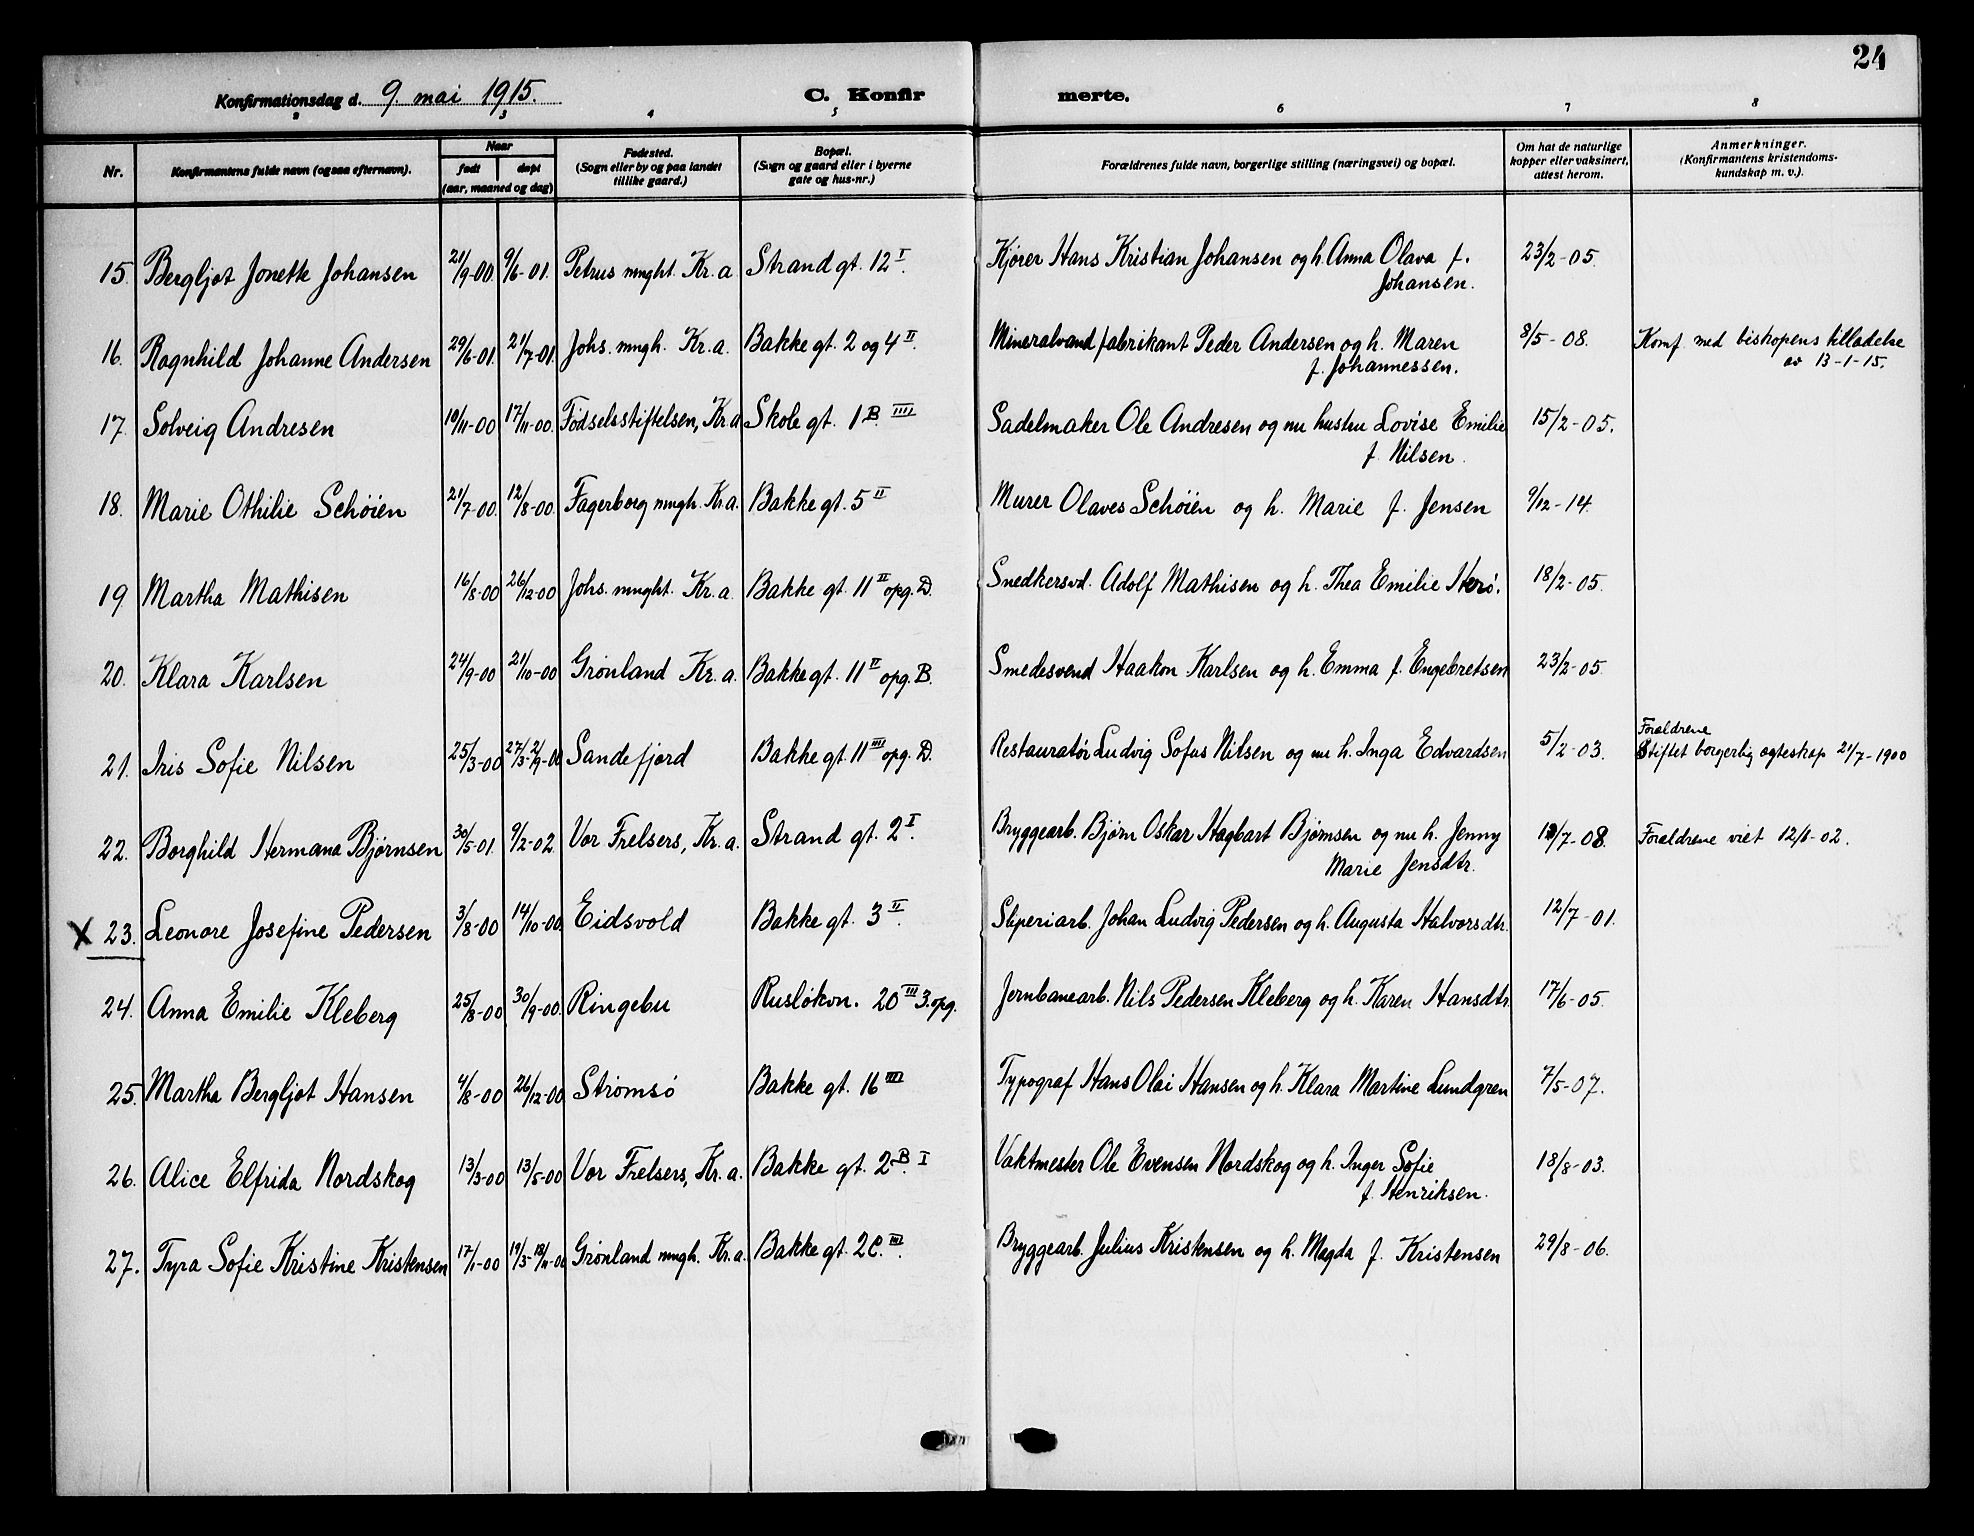 24
Konfirmationsdag d. 9. mai 1915. C. Konfir merte.
2 3 4 5 6 7 8
Nr. Konfirmantens fulde navn (ogsaa efternavn). Naar født døpt (aar, maaned og dag) Fødested. (Sogn eller by og paa landet tillike gaard.) Bopæl. (Sogn og gaard eller i byerne gate og hus-nr.) Forældrenes fulde navn, borgerlige stilling (næringsvei) og bopæl. Om hat de naturlige kopper eller vaksinert, attest herom. Anmerkninger. (Konfirmantens kristendoms-kundskap m. v.).
15. Bergljot Jonette Johansen 21/9-00. 9/6-01. Petrus mnght. Kr.a Strand gt. 12 I. Kjører Hans Kristian Johansen og h. Anna Olava f. 23/2-05.
Johansen.
16. Ragnhild Johanne Andersen 29/6-01. 21/7-01. Johs. mngh. Kr.a. Bakke gt. 2 og 4 II. Mineralvandfabrikant Peder Andersen og h. Maren 8/5-08. Komf. med biskopens tilladelse
f. Johannessen. av 13-1-15.
17. Solveig Andresen 19/11-00 17/11-00. Fødselsstiftelsen, Kr.a Skole gt. 1 B. IIII Sadelmaker Ole Andresen og nu hustru Lovise Emilie 15/2-05.
f. Nilsen.
18. Marie Othilie Schøien 21/7-00. 12/8-00. Fagerborg mngh. Kr.a. Bakke gt. 5 II Murer Olaves Schøien og h. Marie f. Jensen 9/12-14.
19. Martha Mathisen 16/8-00 26/12-00 Johs. mnght. Kr.a. Bakke gt. 11 II opg. D. Snedkersvd. Adolf Mathisen og h. Thea Emilie Herø. 18/2-05.
20. Klara Karlsen 24/9-00 21/10-00 Grønland Kr.a. Bakke gt. 11 II opg. B. Smedesvend Haakon Karlsen og h. Emma f. Engebretsen 23/2-05.
Forældrene
21. Iris Sofie Nilsen 25/3-00 27/3-2/9-00 Sandefjord Bakke gt. 11 III opg. D. Restauratør Ludvig Sofus Nilsen og nu h. Inga Edvardsen 5/2-03. Stiftet borgerlig egteskap 21/7-1900
22. Borghild Hermana Bjørnsen 30/5-01. 9/2-02. Vor Frelsers, Kr.a. Strand gt. 2 I. Bryggearb. Bjørn Oskar Hagbart Bjørnsen og nu h. Jenny /7-08. Forældrene viet 12/1-02.
Marie Jensdtr.
X 23. Leonore Josefine Pedersen 3/8-00 14/10-00. Eidsvold Bakke gt. 3 II. Sliperiarb. Johan Ludvig Pedersen og h. Augusta Halvorsdtr. 12/7-01.
24. Anna Emilie Kleberg 25/8-00 30/9-00. Ringebu Rusløkvn. 20 III 3. opg. Jernbanearb. Nils Pedersen Kleberg og h. Karen Hansdtr. 17/6-05.
25. Martha Bergljot Hansen 4/8-00 26/12-00 Strømsø Bakke gt. 16 III Typograf Hans Olai Hansen og h. Klara Martine Lundgren 7/5-07.
26. Alice Elfrida Nordskog 13/3-00 13/5-00 Vor Frelsers, Kr.a. Bakke gt. 2 B. I Vaktmester Ole Evensen Nordskog og h. Inger Sofie 18/8-03.
f. Henriksen.
27. Tyra Sofie Kristine Kristensen 17/1-00 19/3-18/11-00 Grønland mngh. Kr.a. Bakke gt. 2 C. III. Bryggearb. Julius Kristensen og h. Magda f. Kristensen 29/8-06.